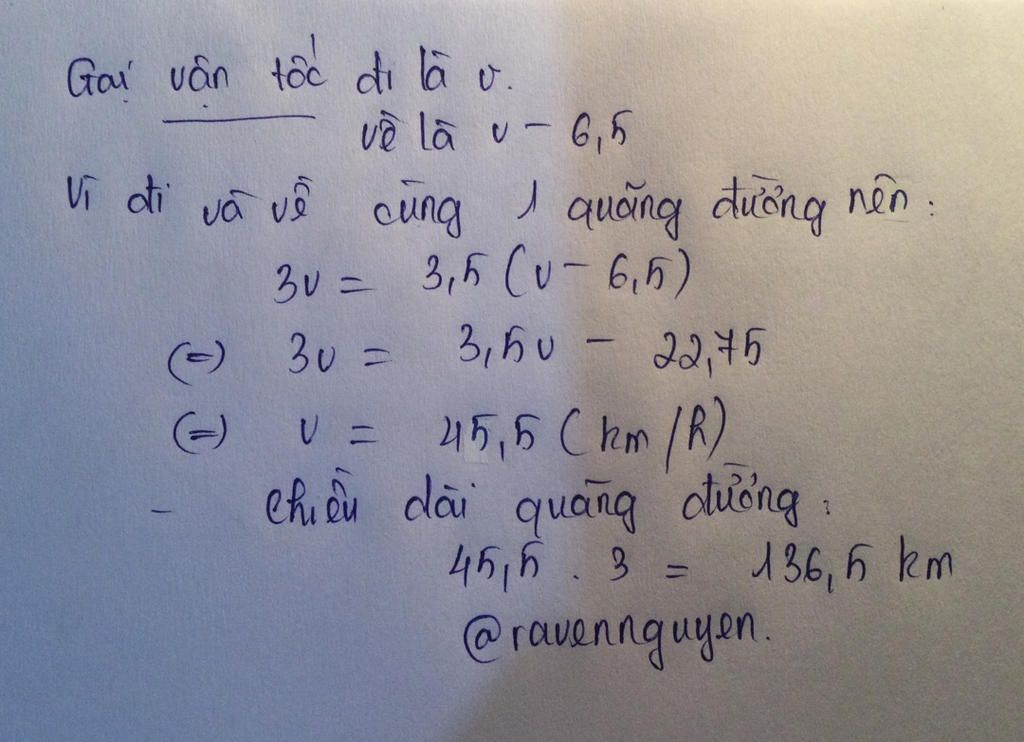 Gọi vận tốc đi là v.
về là v - 6,5
Vì đi và về cùng 1 quãng đường nên:
3v = 3,5 (v - 6,5)
(=) 3v = 3,5v - 22,75
(=) v = 45,5 (km/h)
- chiều dài quãng đường:
45,5 . 3 = 136,5 km
@ravennguyen.